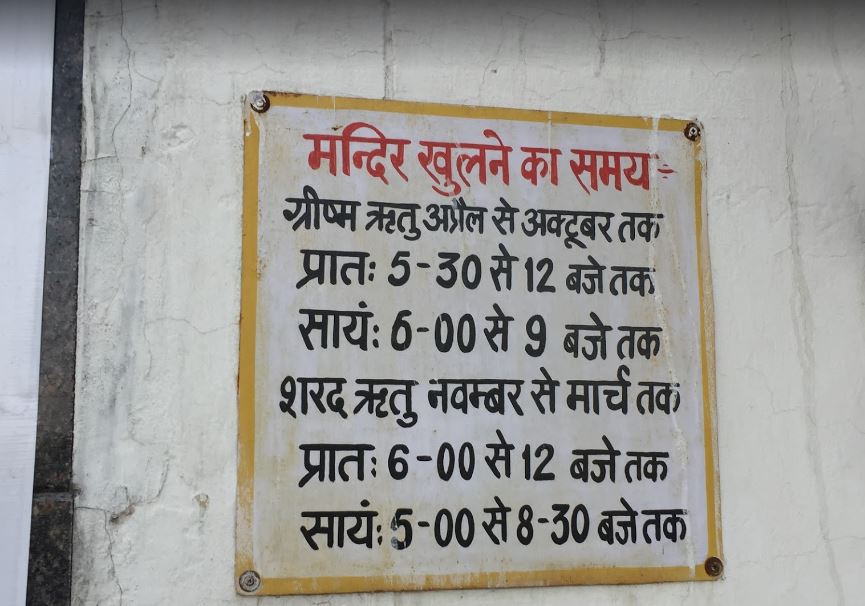 मन्दिर खुलने का समय÷
ग्रीष्म ऋतु अप्रैल से अक्टूबर तक
प्रातः 5-30 से 12 बजे तक
सायंः 6-00 से 9 बजे तक
शरद ऋतु नवम्बर से मार्च तक
प्रातः 6-00 से 12 बजे तक
सायंः 5-00 से 8-30 बजे तक